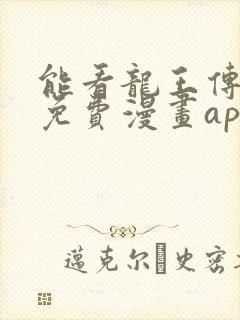 能看龍王傳
免費漫畫ap
邁克尔 史密